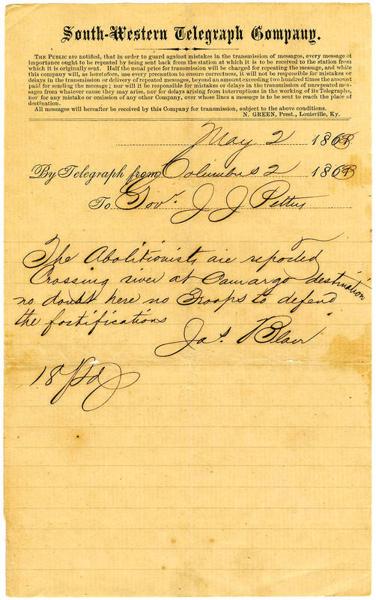 South-Western Telegraph Company.
THE PUBLIC are notified, that in order to guard against mistakes in the transmission of messages, every message of
importance ought to be repeated by being sent back from the station at which it is to be received to the station from
which it is originally sent. Half the usual price for transmission will be charged for repeating the message, and while
this company will, as heretofore, use every precaution to ensure correctness, it will not be responsible for mistakes or
delays in the transmission or delivery of repeated messages, beyond an amount exceeding two hundred times the amount
paid for sending the message; nor will it be responsible for mistakes or delays in the transmission of unrepeated mes-
sages from whatever cause they may arise, nor for delays arising from interruptions in the working of its Telegraphs,
nor for any mistake or omission of any other Company, over whose lines a message is to be sent to reach the place of
destination.
All messages will hereafter be received by this Company for transmission, subject to the above conditions.
N. GREEN, Prest., Louisville, Ky.
May 2 1863
By Telegraph from Columbus 2 1863
To Gov. J J Pettus
The Abolitionists are reported
Crossing river at Camargo destination
no doubt here no Troops to defend
the fortifications
Jas Blair
18 Pd